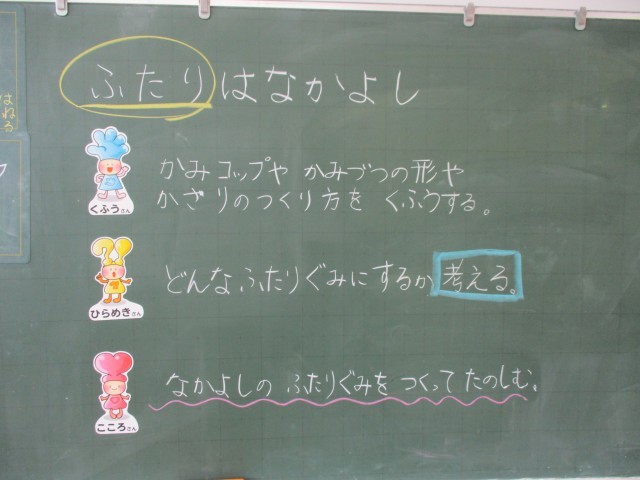 ふたりはなかよし
はねる
かみコップや かみづつの形や
かざりのつくり方を くふうする。
くふうさん
どんなふたりぐみにするか 考える。
ひらめきさん
なかよしの ふたりぐみを つくって たのしむ。
こころさん